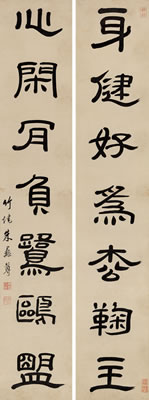 身健好爲枩鞠主
心閑肎負鷺鷗盟
竹垞朱彝尊